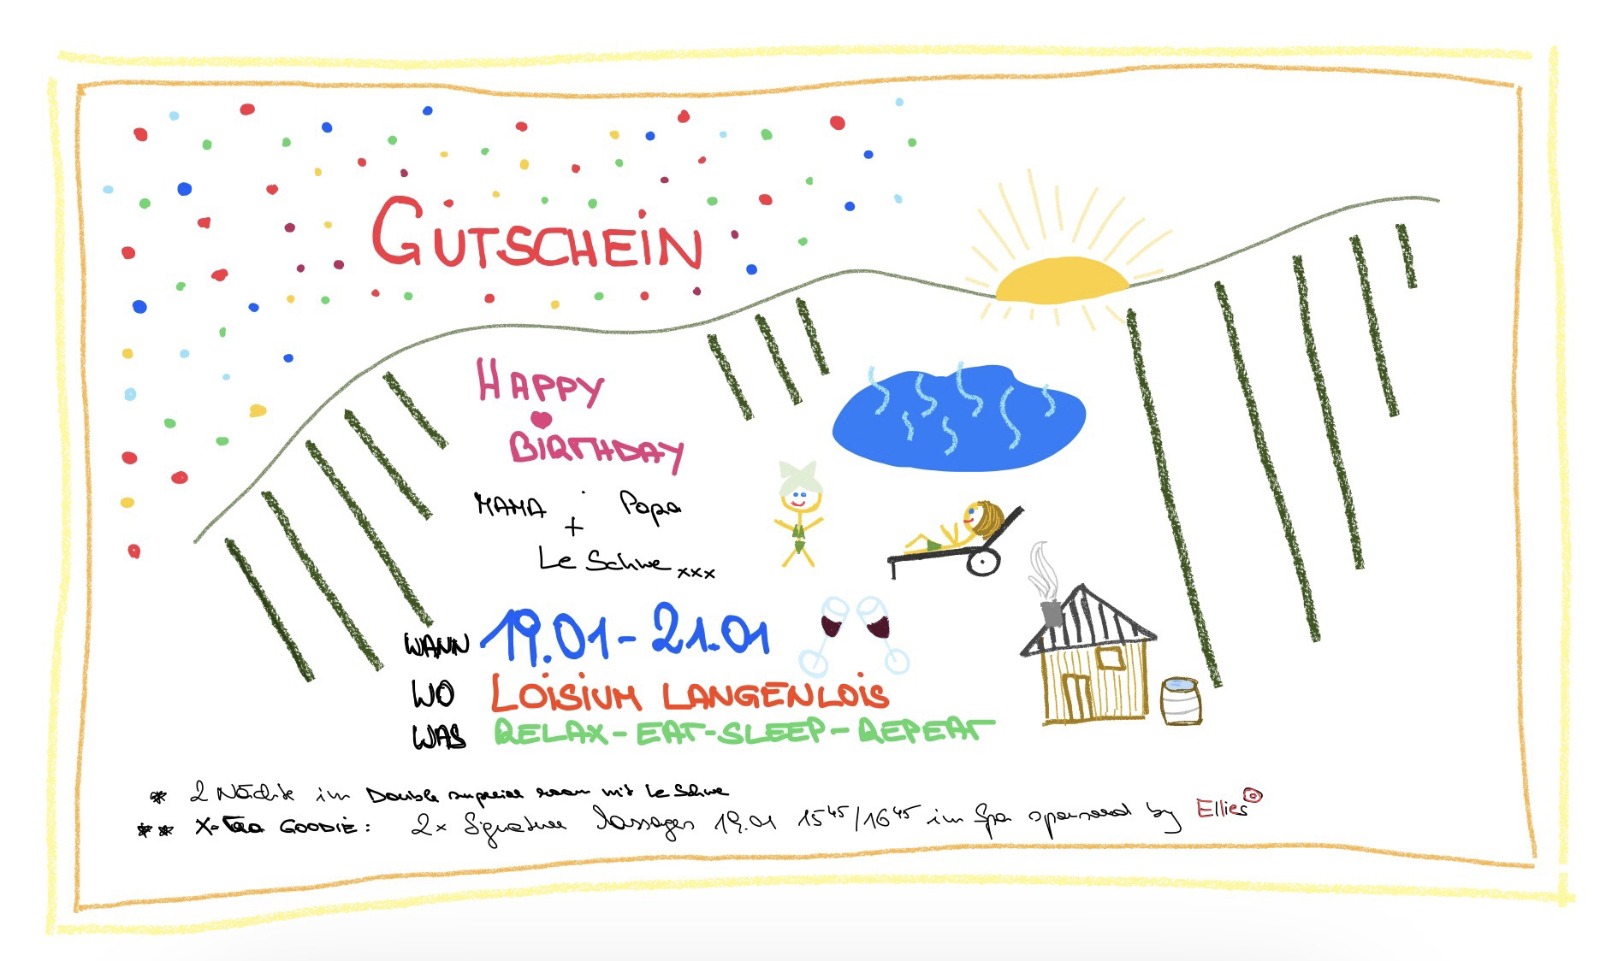 GUTSCHEIN
HAPPY
BIRTHDAY
MAMA + Papa
Le Schwe xxx
WANN 19.01 - 21.01
WO LOISIUM LANGENLOIS
WAS RELAX - EAT - SLEEP - REPEAT
* 2 Nächte im Double superior room mit Le Schwe
** X-Tra GOODIE: 2x Signature Massages 19.01 15⁴⁵/16⁴⁵ im Spa sponsored by Ellies